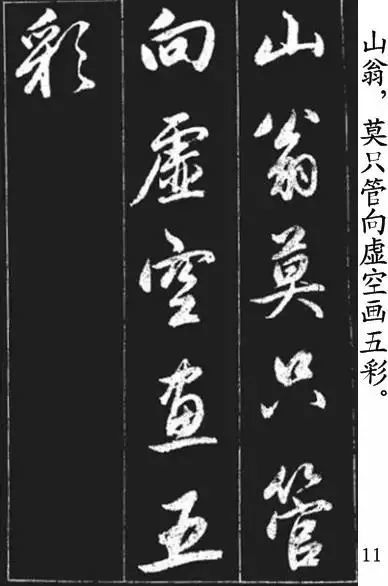 山翁莫只管
向虚空画五
彩
山翁，莫只管向虚空画五彩。
11